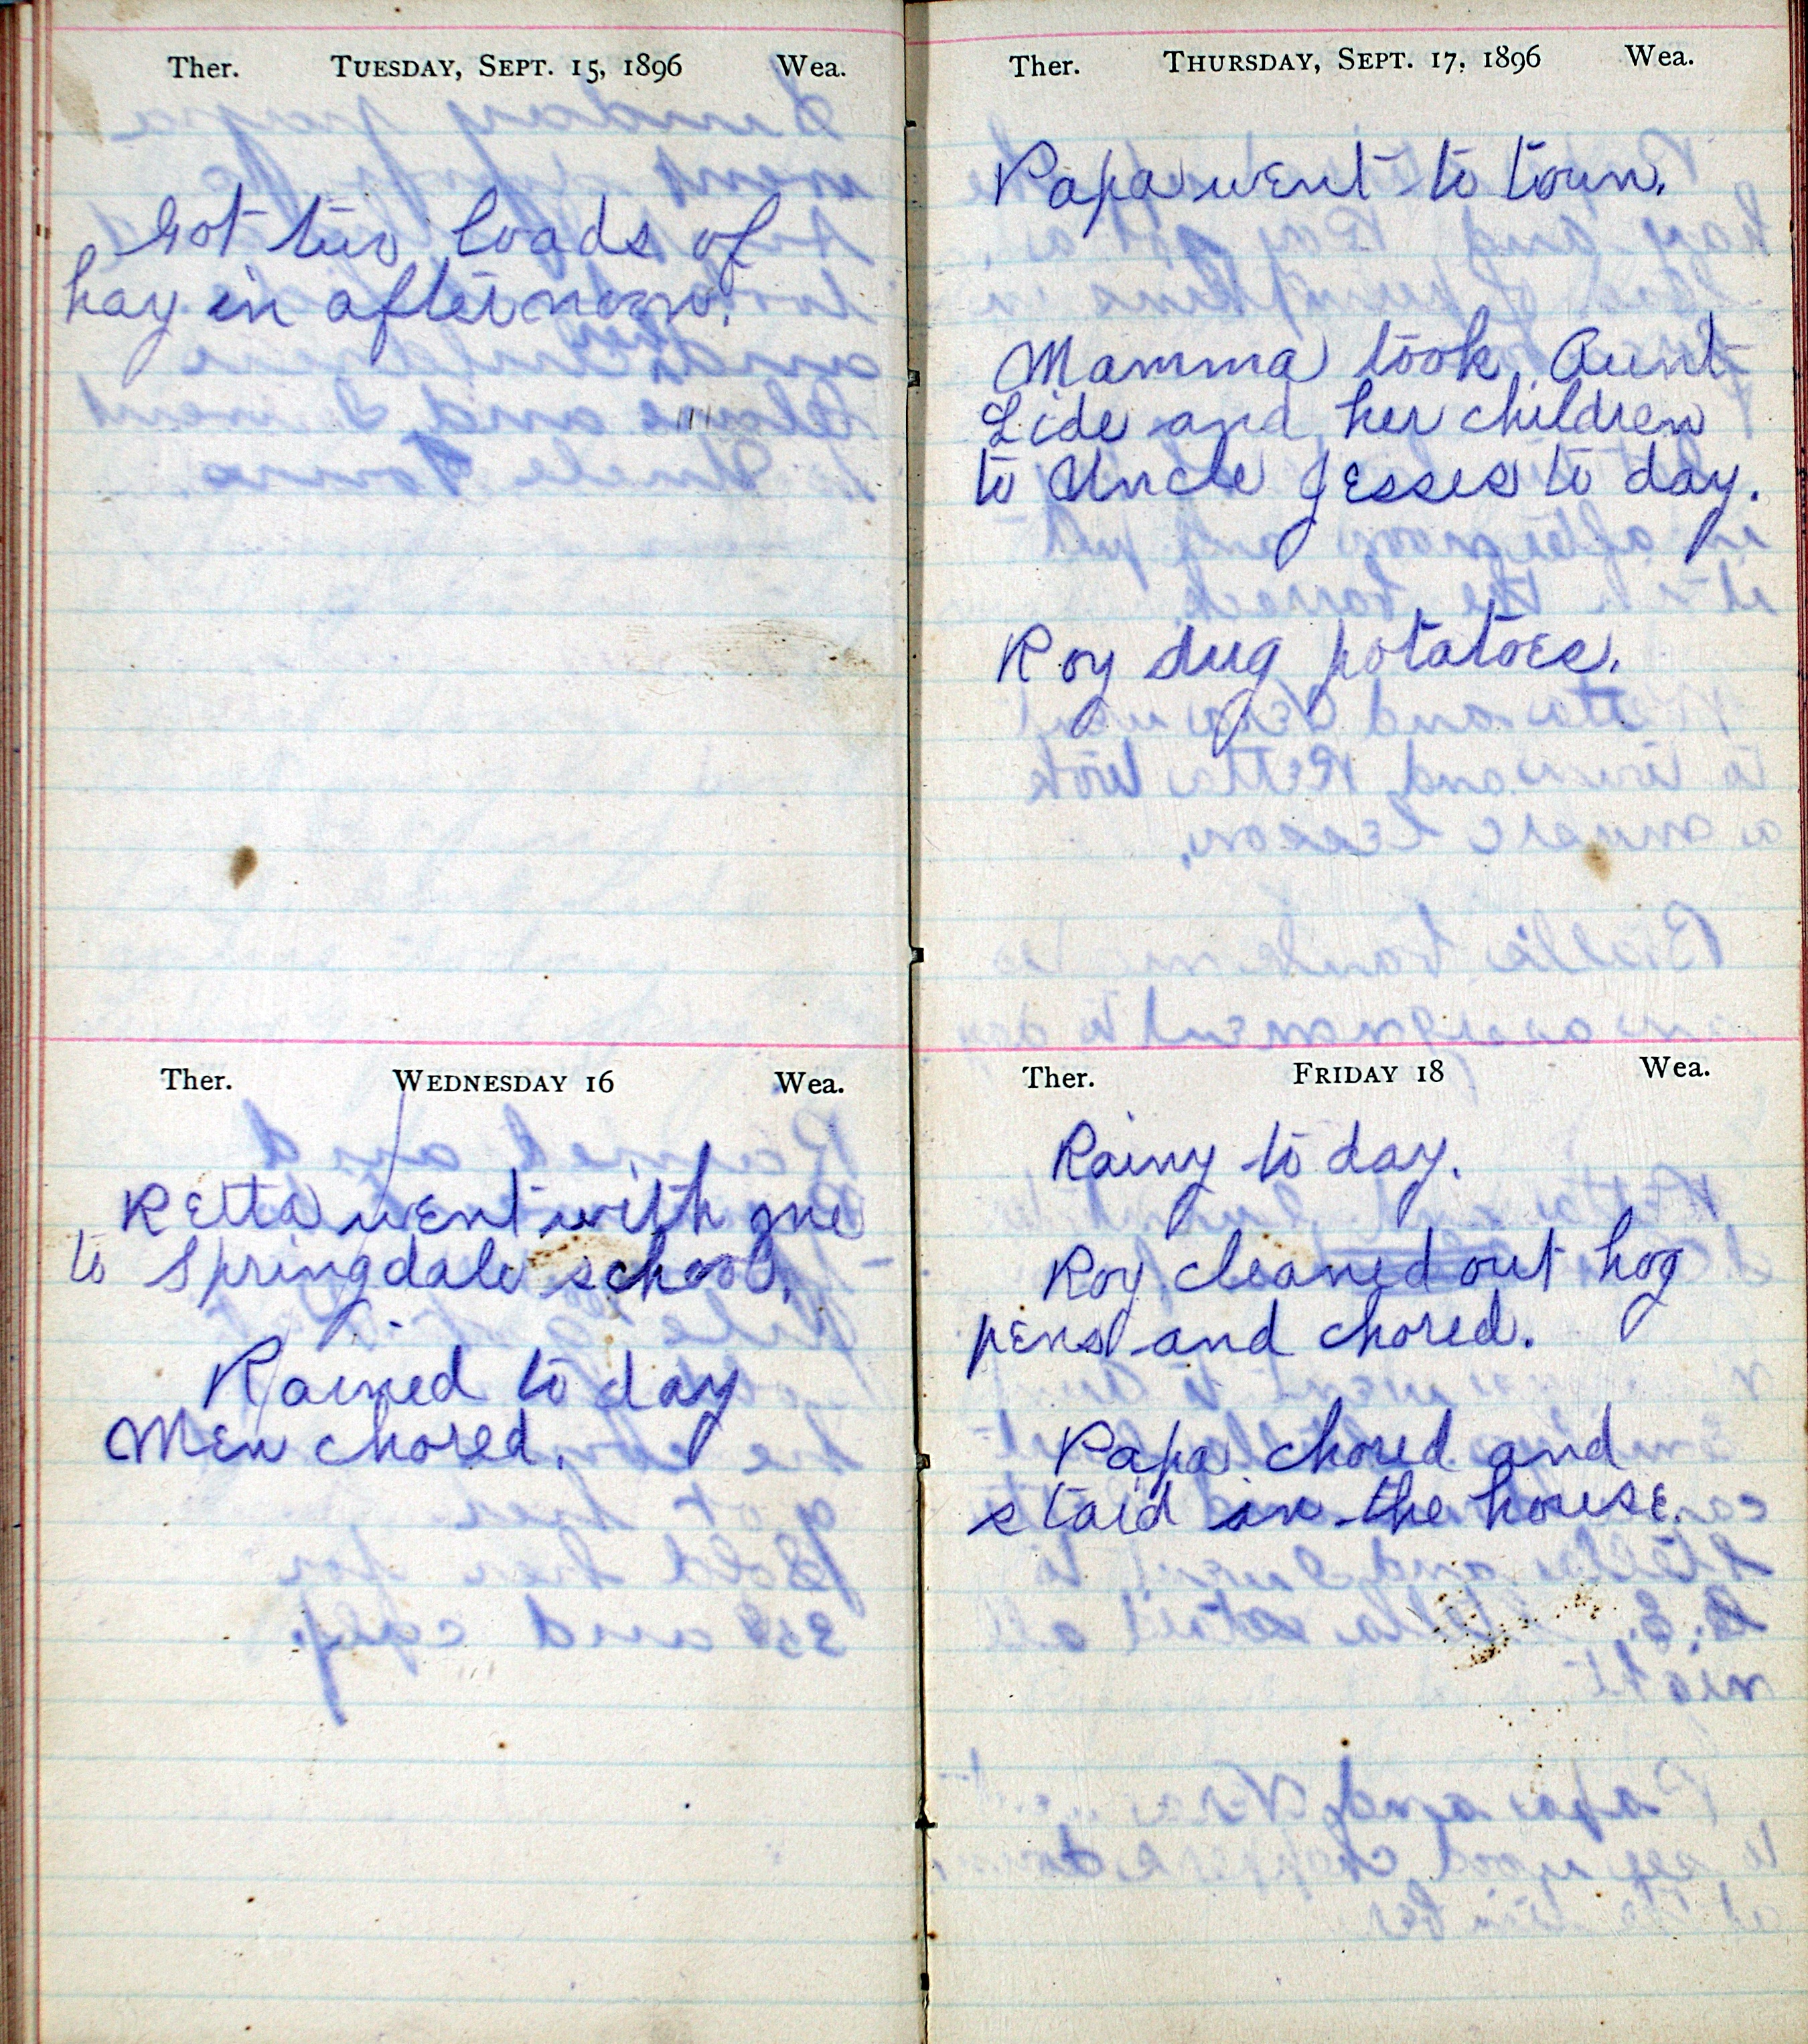 Ther. Tuesday, Sept. 15, 1896 Wea.
Got two loads of
hay in afternoon.
Ther. Wednesday 16 Wea.
Retta went with me
to Springdale school.
Rained to day
Men chored.
Ther. Thursday, Sept. 17, 1896 Wea.
Papa went to town.
Mamma took Aunt
Lide and her children
to Uncle Jesses to day.
Roy dug potatoes.
Ther. Friday 18 Wea.
Rainy to day.
Roy cleaned out hog
pens and chored.
Papa chored and
staid in the house.